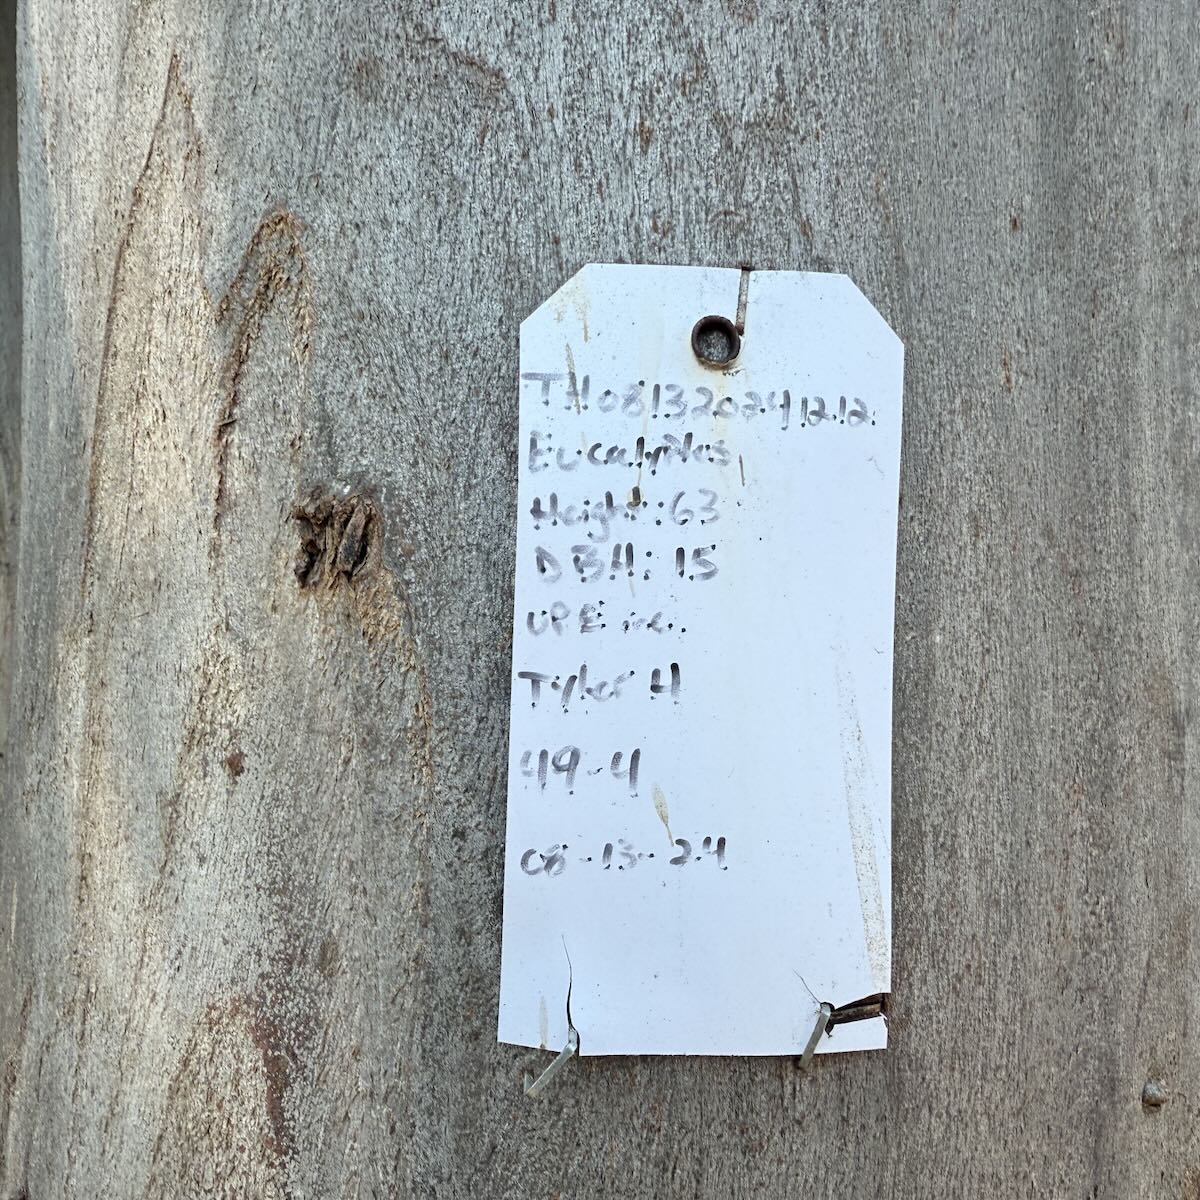 TH081320241212
Eucalyptus
Height: 63
DBH: 15
UPE inc.
Tyler H
49-4
08-13-24